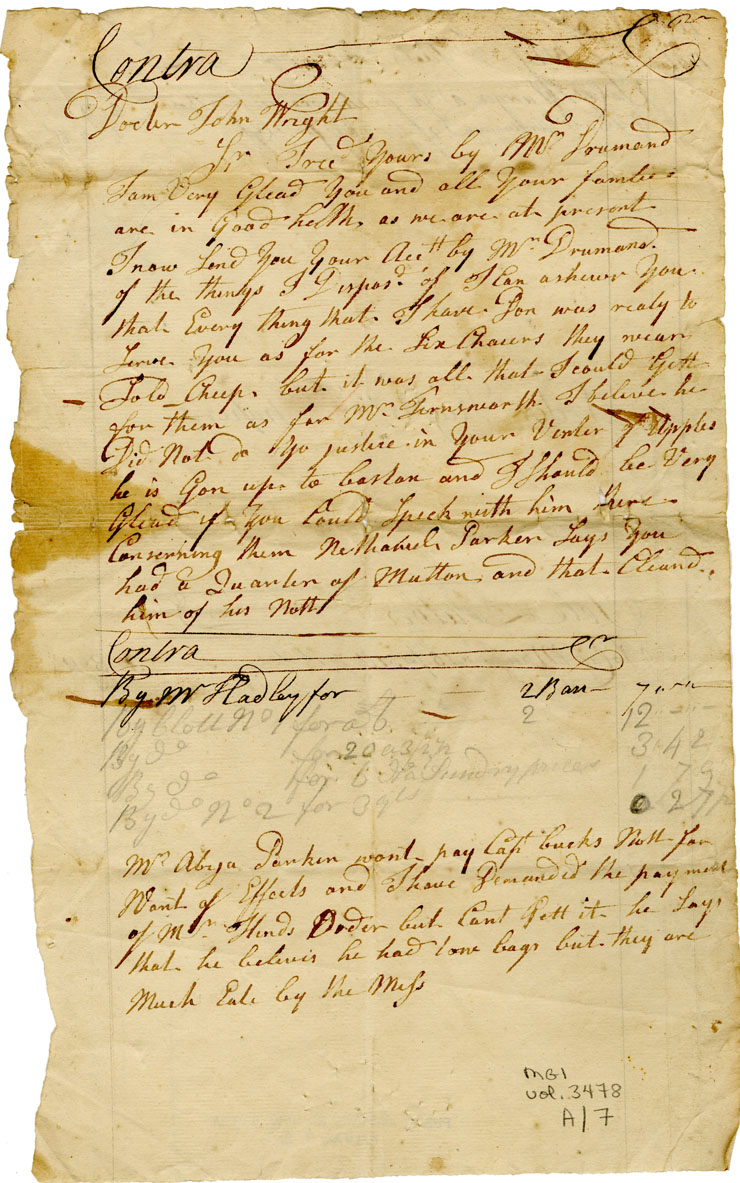 Contra Cr
Docter John Wright
Sr I rec'd Yours by Mr Drumand
I am Very Glead You and all Your famlie
are in Good helth, as we are at present
I now Send You Your Acctt by Mr Drumand.
of the things I Dispos'd of I Can ashewr You
that Every thing that I have Don was realy to
Serve You as for the Six Chaiers they wear
Sold Cheep, but it was all that I could Gett
for them as for Mr Farnsworth I beliver he
Did Not do Yo justice in Your Venter of Apples
he is Gon up to boston and I Should be Very
Glead if You Could Speek with him there
Conserning them Nethaniel Parker Says You
had a Quarter of Mutton and that Cleand
him of his Nott
Contra Cr
By Mr Hadley for 2 Barr 7
By Clott No 1 for 2 12
By do for 20 3 4 2
By do for 6 Sundry prices 1 7
By do No 2 for 39 0 2 7
Mr Abija Parker wont pay Capt bucks Nott for
Want of Effects and I have Demanded the payment
of Mr Hinds Order but Cant Gett it he Says
that he believs he had tow bags but they are
Much Eate by the Mess
MG1
vol. 3478
A/7